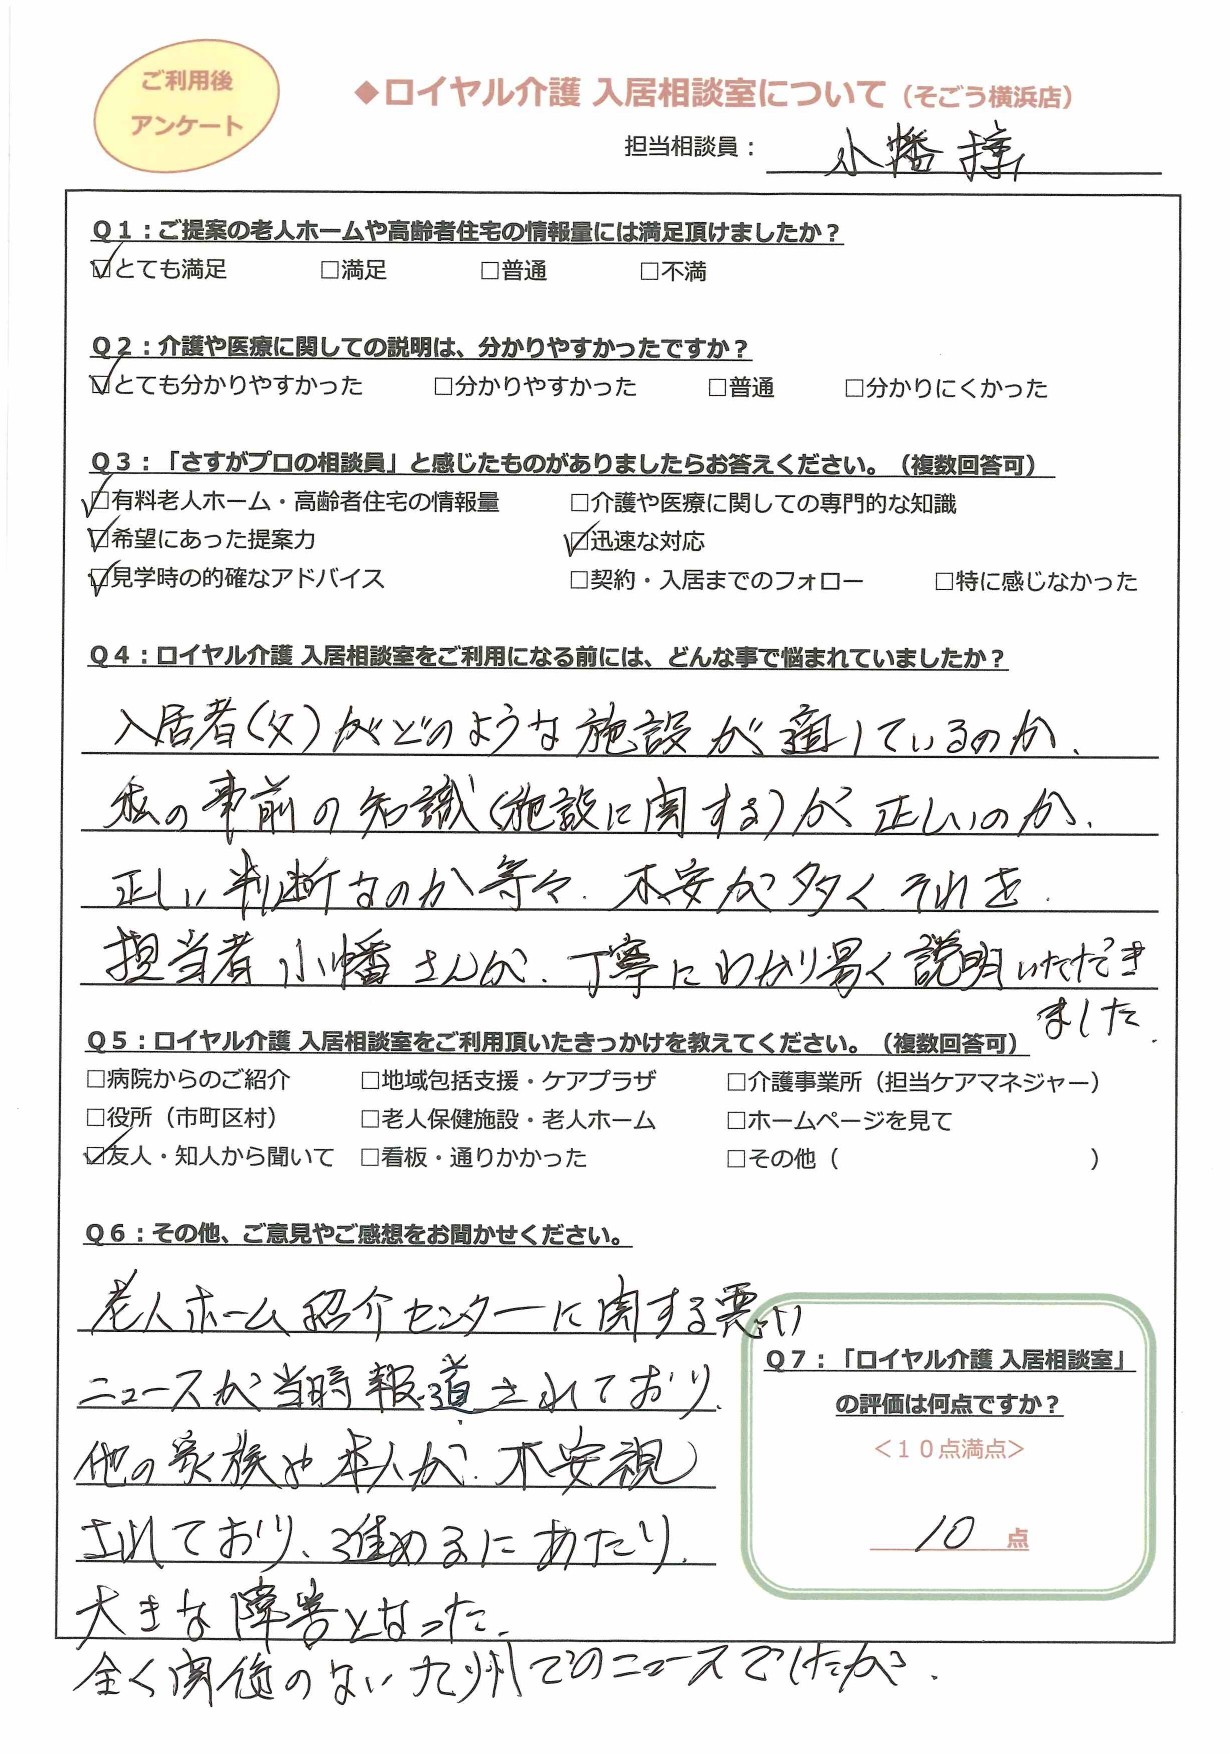 ご利用後
アンケート
◆ロイヤル介護 入居相談室について（そごう横浜店）
担当相談員： 小幡 様
Q1：ご提案の老人ホームや高齢者住宅の情報量には満足頂けましたか？
☑とても満足 □満足 □普通 □不満
Q2：介護や医療に関しての説明は、分かりやすかったですか？
☑とても分かりやすかった □分かりやすかった □普通 □分かりにくかった
Q3：「さすがプロの相談員」と感じたものがありましたらお答えください。（複数回答可）
☑有料老人ホーム・高齢者住宅の情報量 □介護や医療に関しての専門的な知識
☑希望にあった提案力 ☑迅速な対応
☑見学時の的確なアドバイス □契約・入居までのフォロー □特に感じなかった
Q4：ロイヤル介護 入居相談室をご利用になる前には、どんな事で悩まれていましたか？
入居者（父）がどのような施設が適しているのか、
私の事前の知識（施設に関する）が正しいのか、
正しい判断なのか等々、不安が多く、それを
担当者小幡さんが、丁寧にわかり易く説明いただき
ました。
Q5：ロイヤル介護 入居相談室をご利用頂いたきっかけを教えてください。（複数回答可）
□病院からのご紹介 □地域包括支援・ケアプラザ □介護事業所（担当ケアマネジャー）
□役所（市町区村） □老人保健施設・老人ホーム □ホームページを見て
☑友人・知人から聞いて □看板・通りかかった □その他（ ）
Q6：その他、ご意見やご感想をお聞かせください。
老人ホーム紹介センターに関する悪い
ニュースが当時報道されており、
他の家族や本人が、不安視
されており、進めるにあたり、
大きな障害となった。
全く関係のない九州でのニュースでしたが。
Q7：「ロイヤル介護 入居相談室」
の評価は何点ですか？
＜10点満点＞
10 点